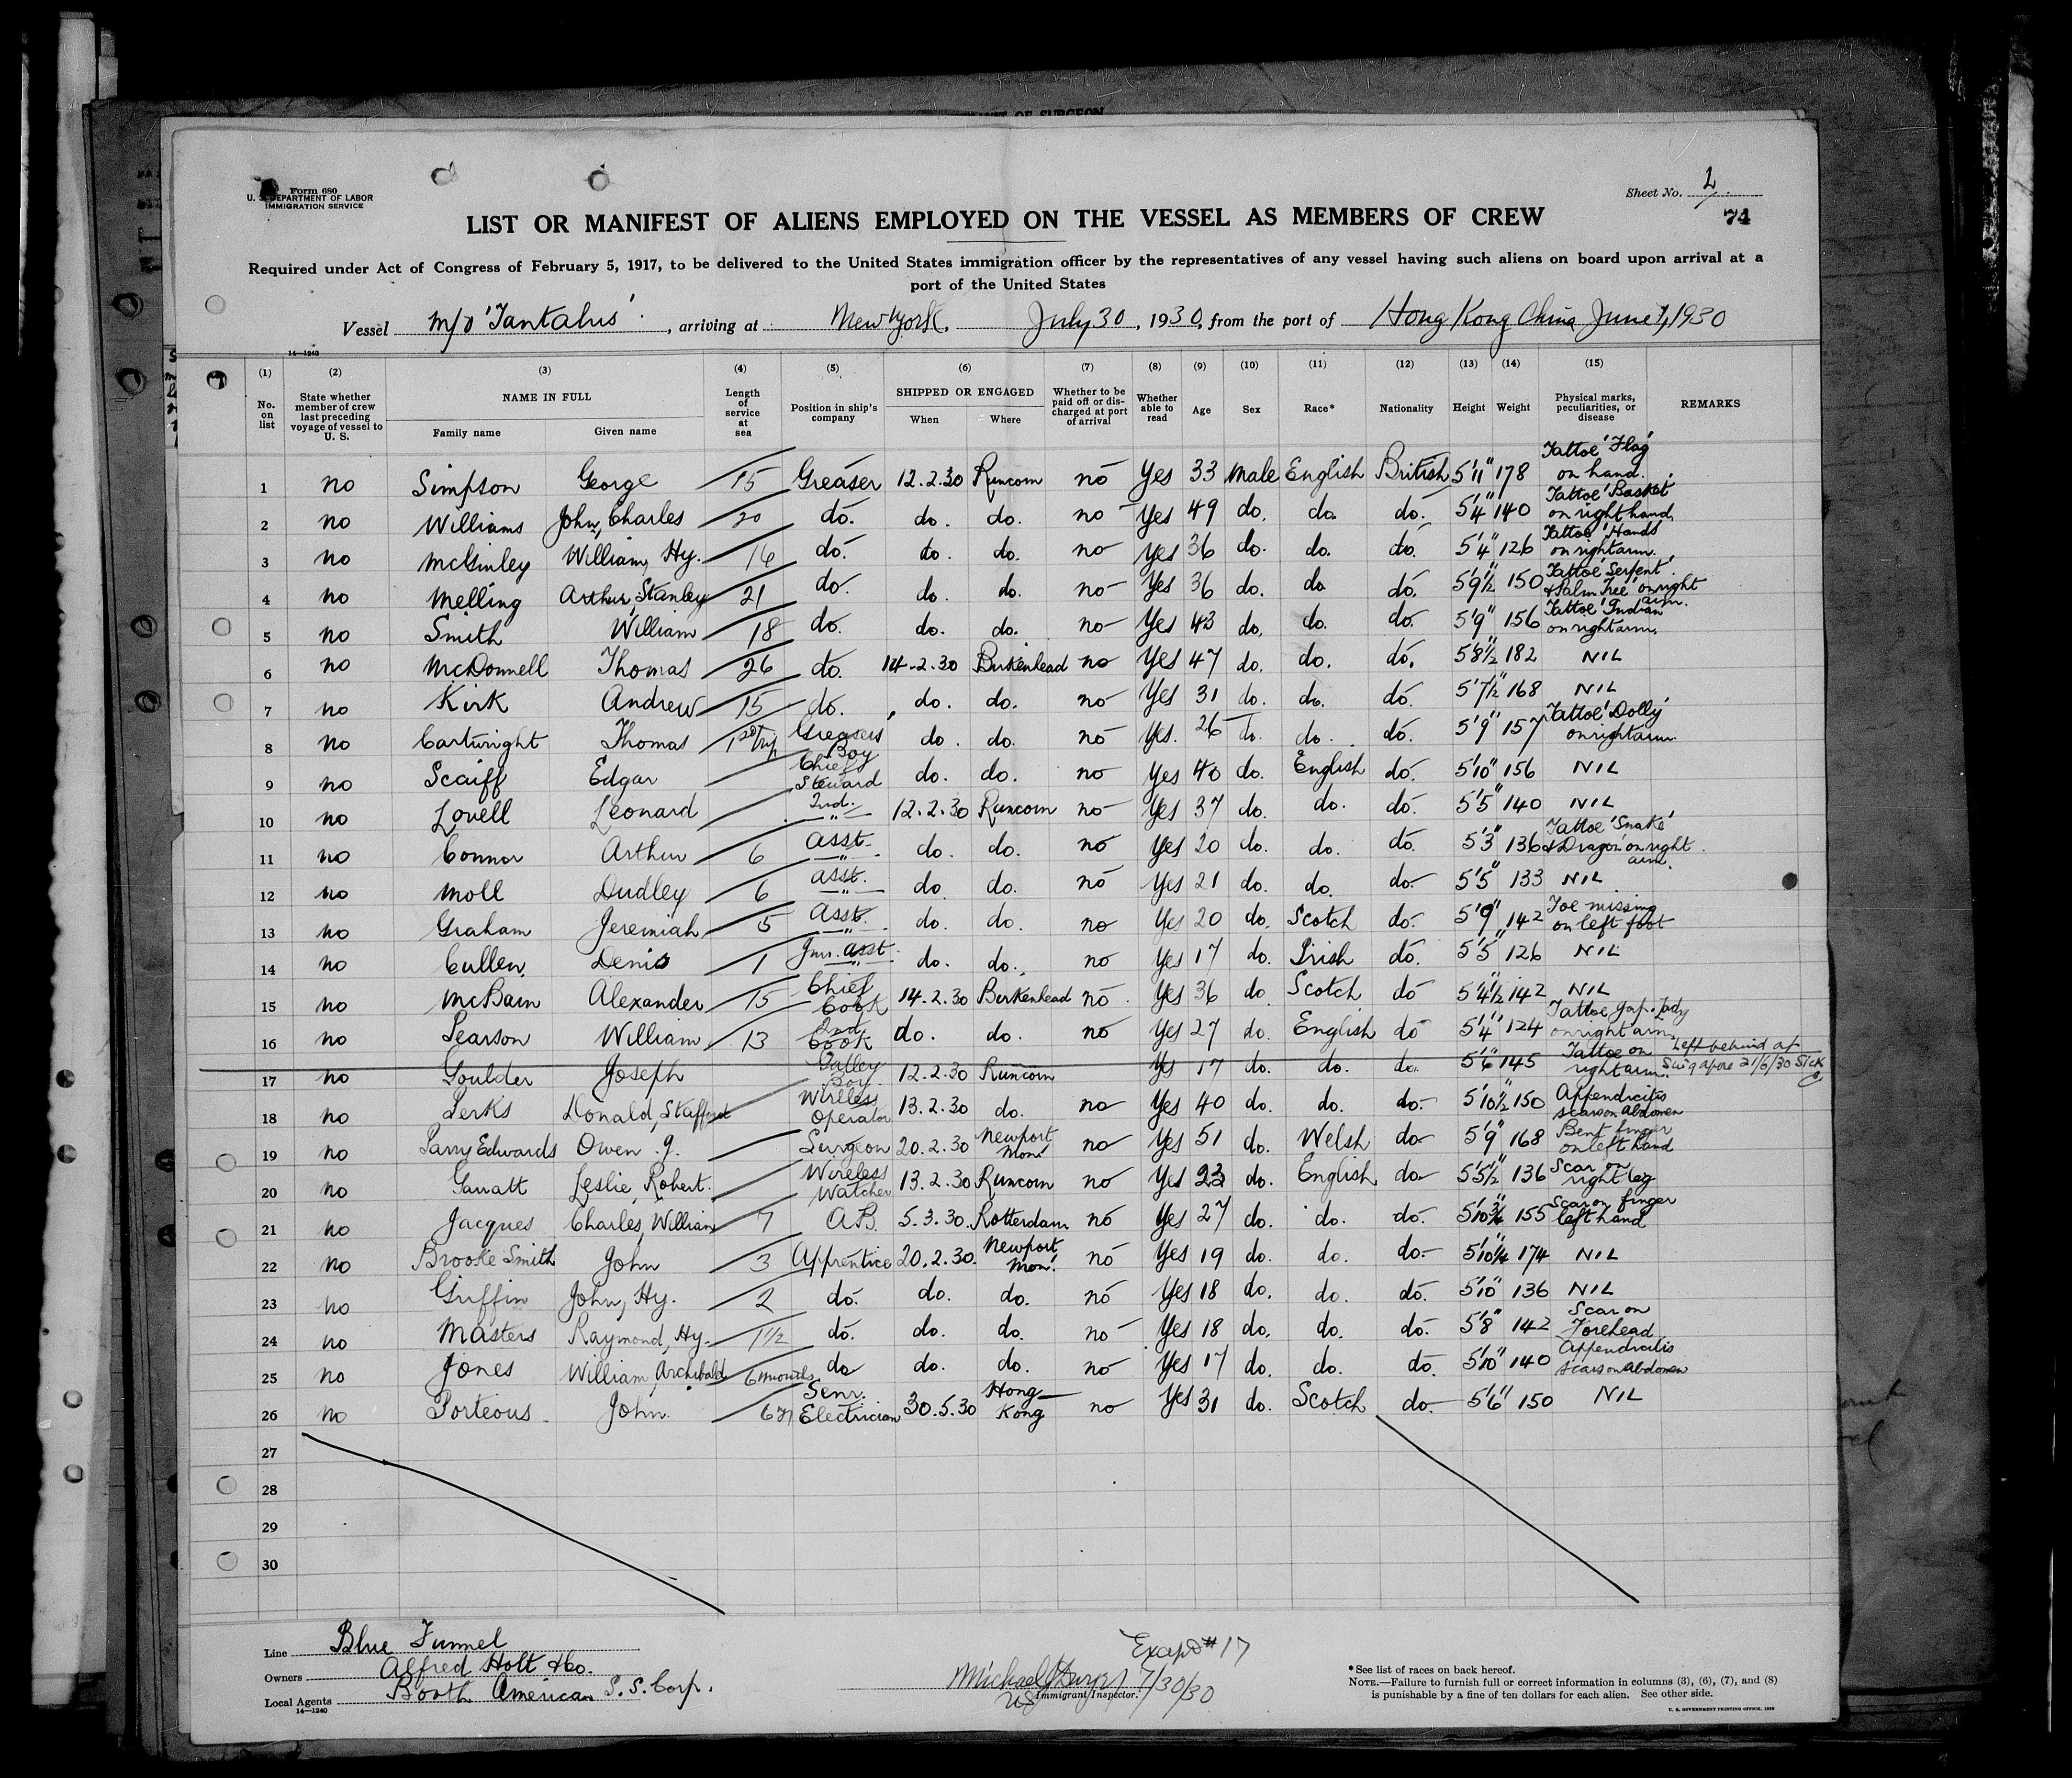 Form 680
U. S. DEPARTMENT OF LABOR
IMMIGRATION SERVICE
Sheet No. 2
LIST OR MANIFEST OF ALIENS EMPLOYED ON THE VESSEL AS MEMBERS OF CREW
74
Required under Act of Congress of February 5, 1917, to be delivered to the United States immigration officer by the representatives of any vessel having such aliens on board upon arrival at a
port of the United States
Vessel M/V 'Tantalus' , arriving at New York, July 30, 1930, from the port of Hong Kong China June 1, 1930
14—1240
(1) (2) (3) (4) (5) (6) (7) (8) (9) (10) (11) (12) (13) (14) (15)
No. on list State whether member of crew last preceding voyage of vessel to U. S. NAME IN FULL Family name Given name Length of service at sea Position in ship's company SHIPPED OR ENGAGED When Where Whether to be paid off or discharged at port of arrival Whether able to read Age Sex Race* Nationality Height Weight Physical marks, peculiarities, or disease REMARKS
1 no Simpson George 15 Greaser 12.2.30 Runcorn no Yes 33 Male English British 5'11" 178 Tattoe 'Flag' on hand.
2 no Williams John, Charles 20 do. do. do. no Yes 49 do. do. do. 5'4" 140 Tattoe 'Basket' on right hand.
3 no McGinley William, Hy. 16 do. do. do. no Yes 36 do. do. do. 5'4" 126 Tattoe 'Hands' on right arm.
4 no Melling Arthur, Stanley 21 do. do. do. no Yes 36 do. do do. 5'9½" 150 Tattoe 'Serpent' & 'Palm Tree' on right arm.
5 no Smith William 18 do. do. do. no Yes 43 do. do. do. 5'9" 156 Tattoe 'Indian' on right arm.
6 no McDonnell Thomas 26 do. 14-2.30 Birkenhead no Yes 47 do. do. do. 5'8½" 182 NIL
7 no Kirk Andrew 15 do. do. do. no Yes 31 do. do. do. 5'7½" 168 NIL
8 no Cartwright Thomas 1st Trip Greasers Boy do. do. no Yes. 26 do. do. do. 5'9" 157 Tattoe 'Dolly' on right arm
9 no Scaiff Edgar Chief Steward do. do. no Yes 40 do. English do. 5'10" 156 NIL
10 no Lovell Leonard 2nd. —"— 12.2.30 Runcorn no Yes 37 do. do. do. 5'5" 140 NIL
11 no Connor Arthur 6 Asst. —"— do. do. no Yes 20 do. do. do. 5'3" 136 Tattoe 'Snake' & 'Dragon' on right arm.
12 no Moll Dudley 6 Asst. —"— do do. no Yes 21 do. do. do. 5'5" 133 NIL
13 no Graham Jeremiah 5 Asst. —"— do. do. no Yes 20 do. Scotch do. 5'9" 142 Toe missing on left foot
14 no Cullen Denis 1 Jnr. Asst —"— do. do. no Yes 17 do. Irish do. 5'5" 126 NIL
15 no McBain Alexander 15 Chief Cook 14.2.30 Birkenhead no Yes 36 do Scotch do 5'4½" 142 NIL
16 no Pearson William 13 2nd Cook do. do. no Yes 27 do. English do 5'4" 124 Tattoe Jap. Lady on right arm
17 no Goulder Joseph Galley Boy 12.2.30 Runcorn Yes 17 do. do. do. 5'6" 145 Tattoe on right arm. Left behind at Singapore 21/6/30 Sick
18 no Perks Donald, Stafford Wireless Operator 13.2.30 do. no Yes 40 do. do. do. 5'10½" 150 Appendicitis scar on Abdomen
19 no Parry Edwards Owen. G. Surgeon 20.2.30 Newport Mon: no Yes 51 do. Welsh do 5'9" 168 Bent finger on left hand
20 no Garratt Leslie, Robert. Wireless Watcher 13.2.30 Runcorn no Yes 23 do. English do 5'5½" 136 Scar on right leg
21 no Jacques Charles, William 7 A.B. 5.3.30. Rotterdam no Yes 27 do. do. do. 5'10¾" 155 Scar on finger left hand
22 no Brooke Smith John 3 Apprentice 20.2.30. Newport, Mon: no Yes 19 do. do. do. 5'10¼" 174 NIL
23 no Griffin John, Hy. 2 do. do. do. no Yes 18 do. do. do. 5'10" 136 NIL
24 no Masters Raymond, Hy. 1½ do. do. do. no Yes 18 do. do. do. 5'8" 142 Scar on Forehead
25 no Jones William, Archibald 6 months do do. do. no Yes 17 do. do. do. 5'10" 140 Appendicitis scar on Abdomen
26 no Porteous John. Senr. Electrician 30.5.30 Hong Kong no Yes 31 do. Scotch do. 5'6" 150 NIL
27
28
29
30
Line Blue Funnel
Owners Alfred Holt & Co.
Local Agents Booth American S.S. Corp.
14—1240
Except #17
Michael 7/30/30
US Immigrant Inspector.
*See list of races on back hereof.
NOTE.—Failure to furnish full or correct information in columns (3), (6), (7), and (8)
is punishable by a fine of ten dollars for each alien. See other side.
U. S. GOVERNMENT PRINTING OFFICE, 1929